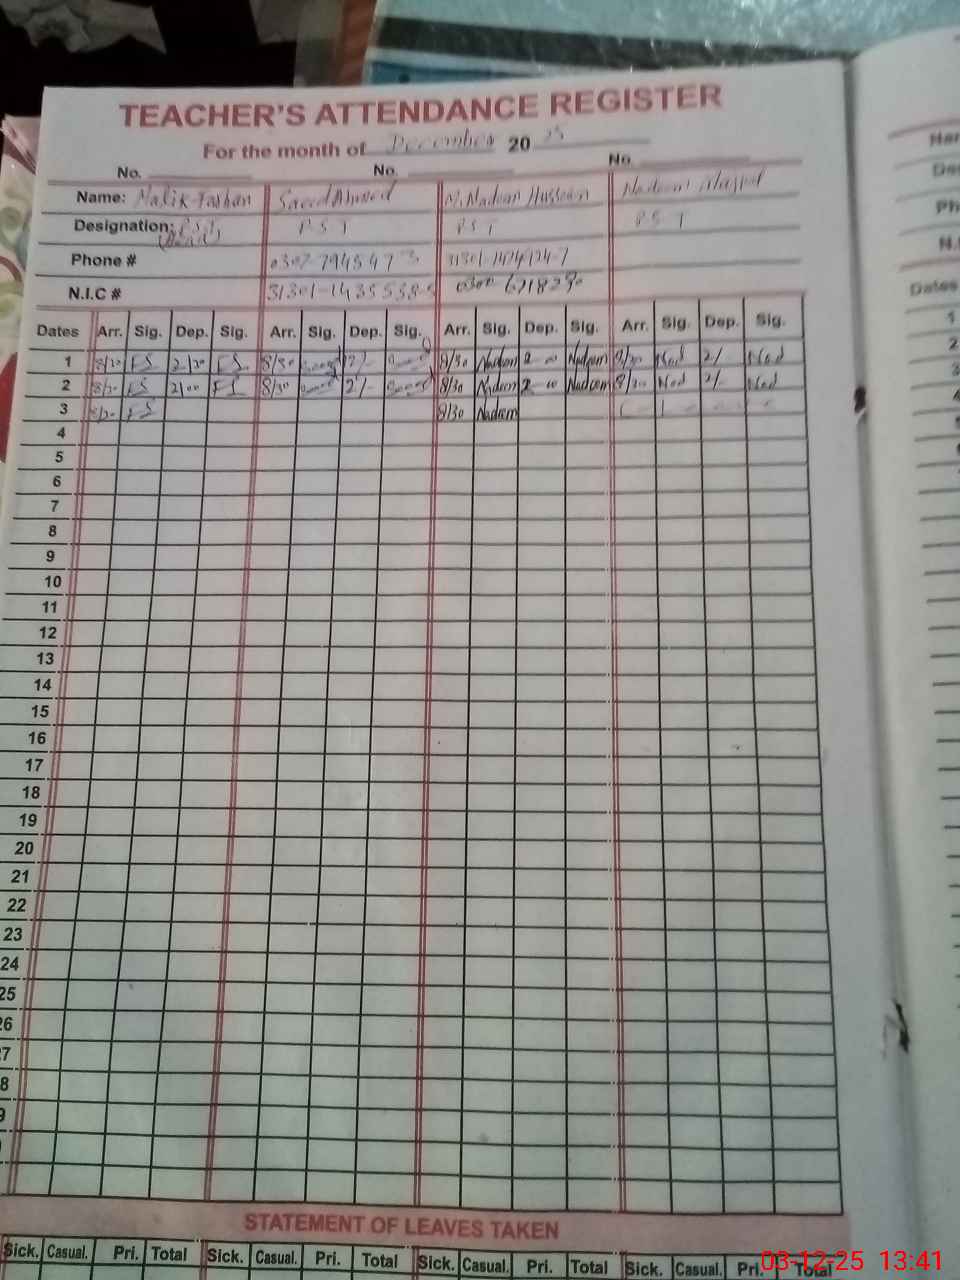 TEACHER'S ATTENDANCE REGISTER
For the month of December 20 25
No. No. No.
Name: Malik Saeed Ahmed M. Nadeem Hussain Nadeem
Designation: PST P S T P S T P S T
(Head)
Phone # 31301-
N.I.C # 31301-1435538-5 0300-6718230
Dates Arr. Sig. Dep. Sig. Arr. Sig. Dep. Sig. Arr. Sig. Dep. Sig. Arr. Sig. Dep. Sig.
1 8/30 FS 2/30 FS 8/30 2/- 8/30 Nadeem 2-00 Nadeem 8/30 Nad 2/- Nad
2 8/30 FS 2/00 FS 8/30 2/- 8/30 Nadeem 2-00 Nadeem 8/30 Nad 2/- Nad
3 8/30 FS 8/30 Nadeem
4
5
6
7
8
9
10
11
12
13
14
15
16
17
18
19
20
21
22
23
24
25
26
7
8
9
STATEMENT OF LEAVES TAKEN
Sick. Casual. Pri. Total Sick. Casual. Pri. Total Sick. Casual. Pri. Total Sick. Casual. Pri. Total
03-12-25 13:41
Dates
1
2
3
4